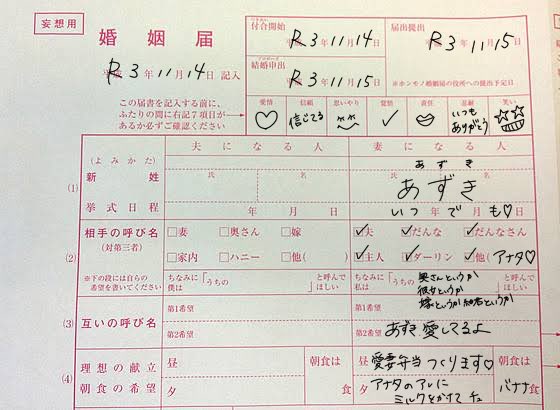 妄想用
婚姻届
R3年11月14日 記入
付合開始
R3年11月14日
プロポーズ
結婚申出
R3年11月15日
届出提出
R3年11月15日
※ホンモノ婚姻届の役所への提出予定日
この届書を記入する前に、
ふたりの間に右記7項目が
あるか必ずご確認ください
愛情 信頼 思いやり 覚悟 責任 忍耐 笑い
♡ 信じてる ✓ いつもありがとう
夫になる人 妻になる人
(よみかた) あずき
(1) 新姓 氏 名 氏 名
あずき
挙式日程 年 月 日 いつ年で月も♡日
相手の呼び名 □妻 □奥さん □嫁 ☑夫 ☑だんな ☑だんなさん
(対第三者)
(2) □家内 □ハニー □他( ) ☑主人 ☑ダーリン ☑他(アナタ♡)
※下の段には自らの
希望を書いてください
ちなみに「うちの 」と呼んで
僕は ほしい
ちなみに「うちの 」と呼んで
私は ほしい
奥さんというか
彼女というか
嫁というか
(3) 互いの呼び名
第1希望 第1希望
第2希望 第2希望 あずき、愛してるよ
(4) 理想の献立
朝食の希望
昼 朝食は
夕 食
昼 愛妻弁当つくります♡ 朝食は
夕 アナタのアレに
ミルクをかけて
バナナ食